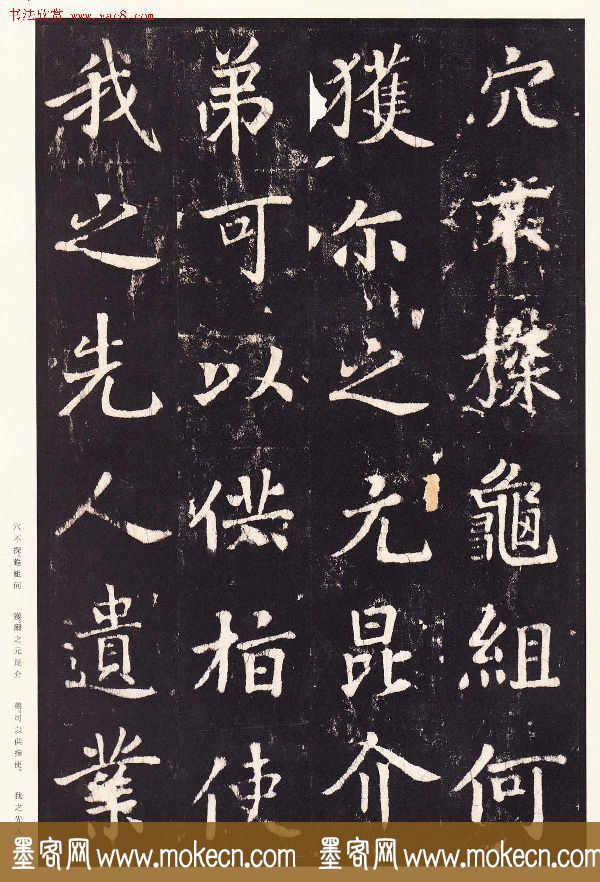 书法欣赏 www.yac8.com
穴探龜組何
獲尓之元昆介
弟可以供指使
我之先人遺業
穴不探。龜組何
獲。爾之元昆介
弟。可以供指使。
我之先
墨客网www.mokecn.com 墨客网www.mokecn.com